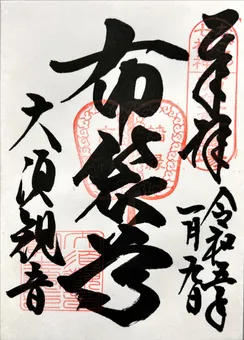 奉拝
令和五年
一月九日
布袋尊
大須観音